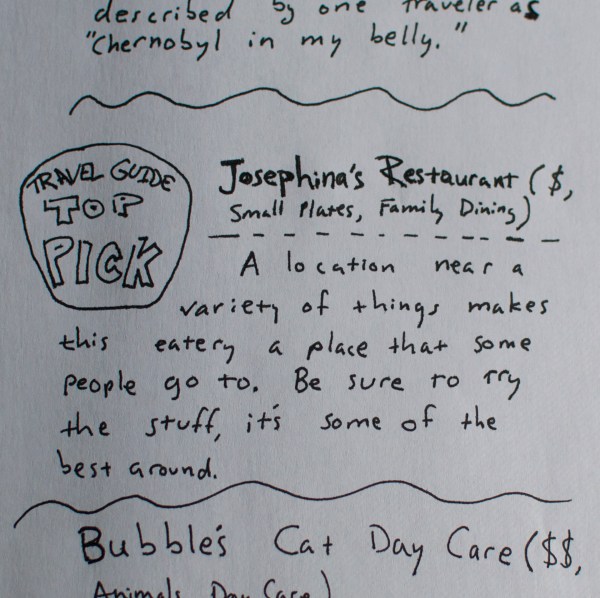 described by one traveler as
"Chernobyl in my belly."
TRAVEL GUIDE
TOP
PICK
Josephina's Restaurant ($,
Small Plates, Family Dining)
A location near a
variety of things makes
this eatery a place that some
people go to. Be sure to try
the stuff, it's some of the
best around.
Bubble's Cat Day Care ($$,
Animals, Day Care)